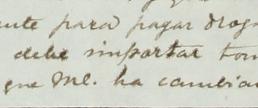 ente para pagar drog
debe importar tom
que Me. ha cambia